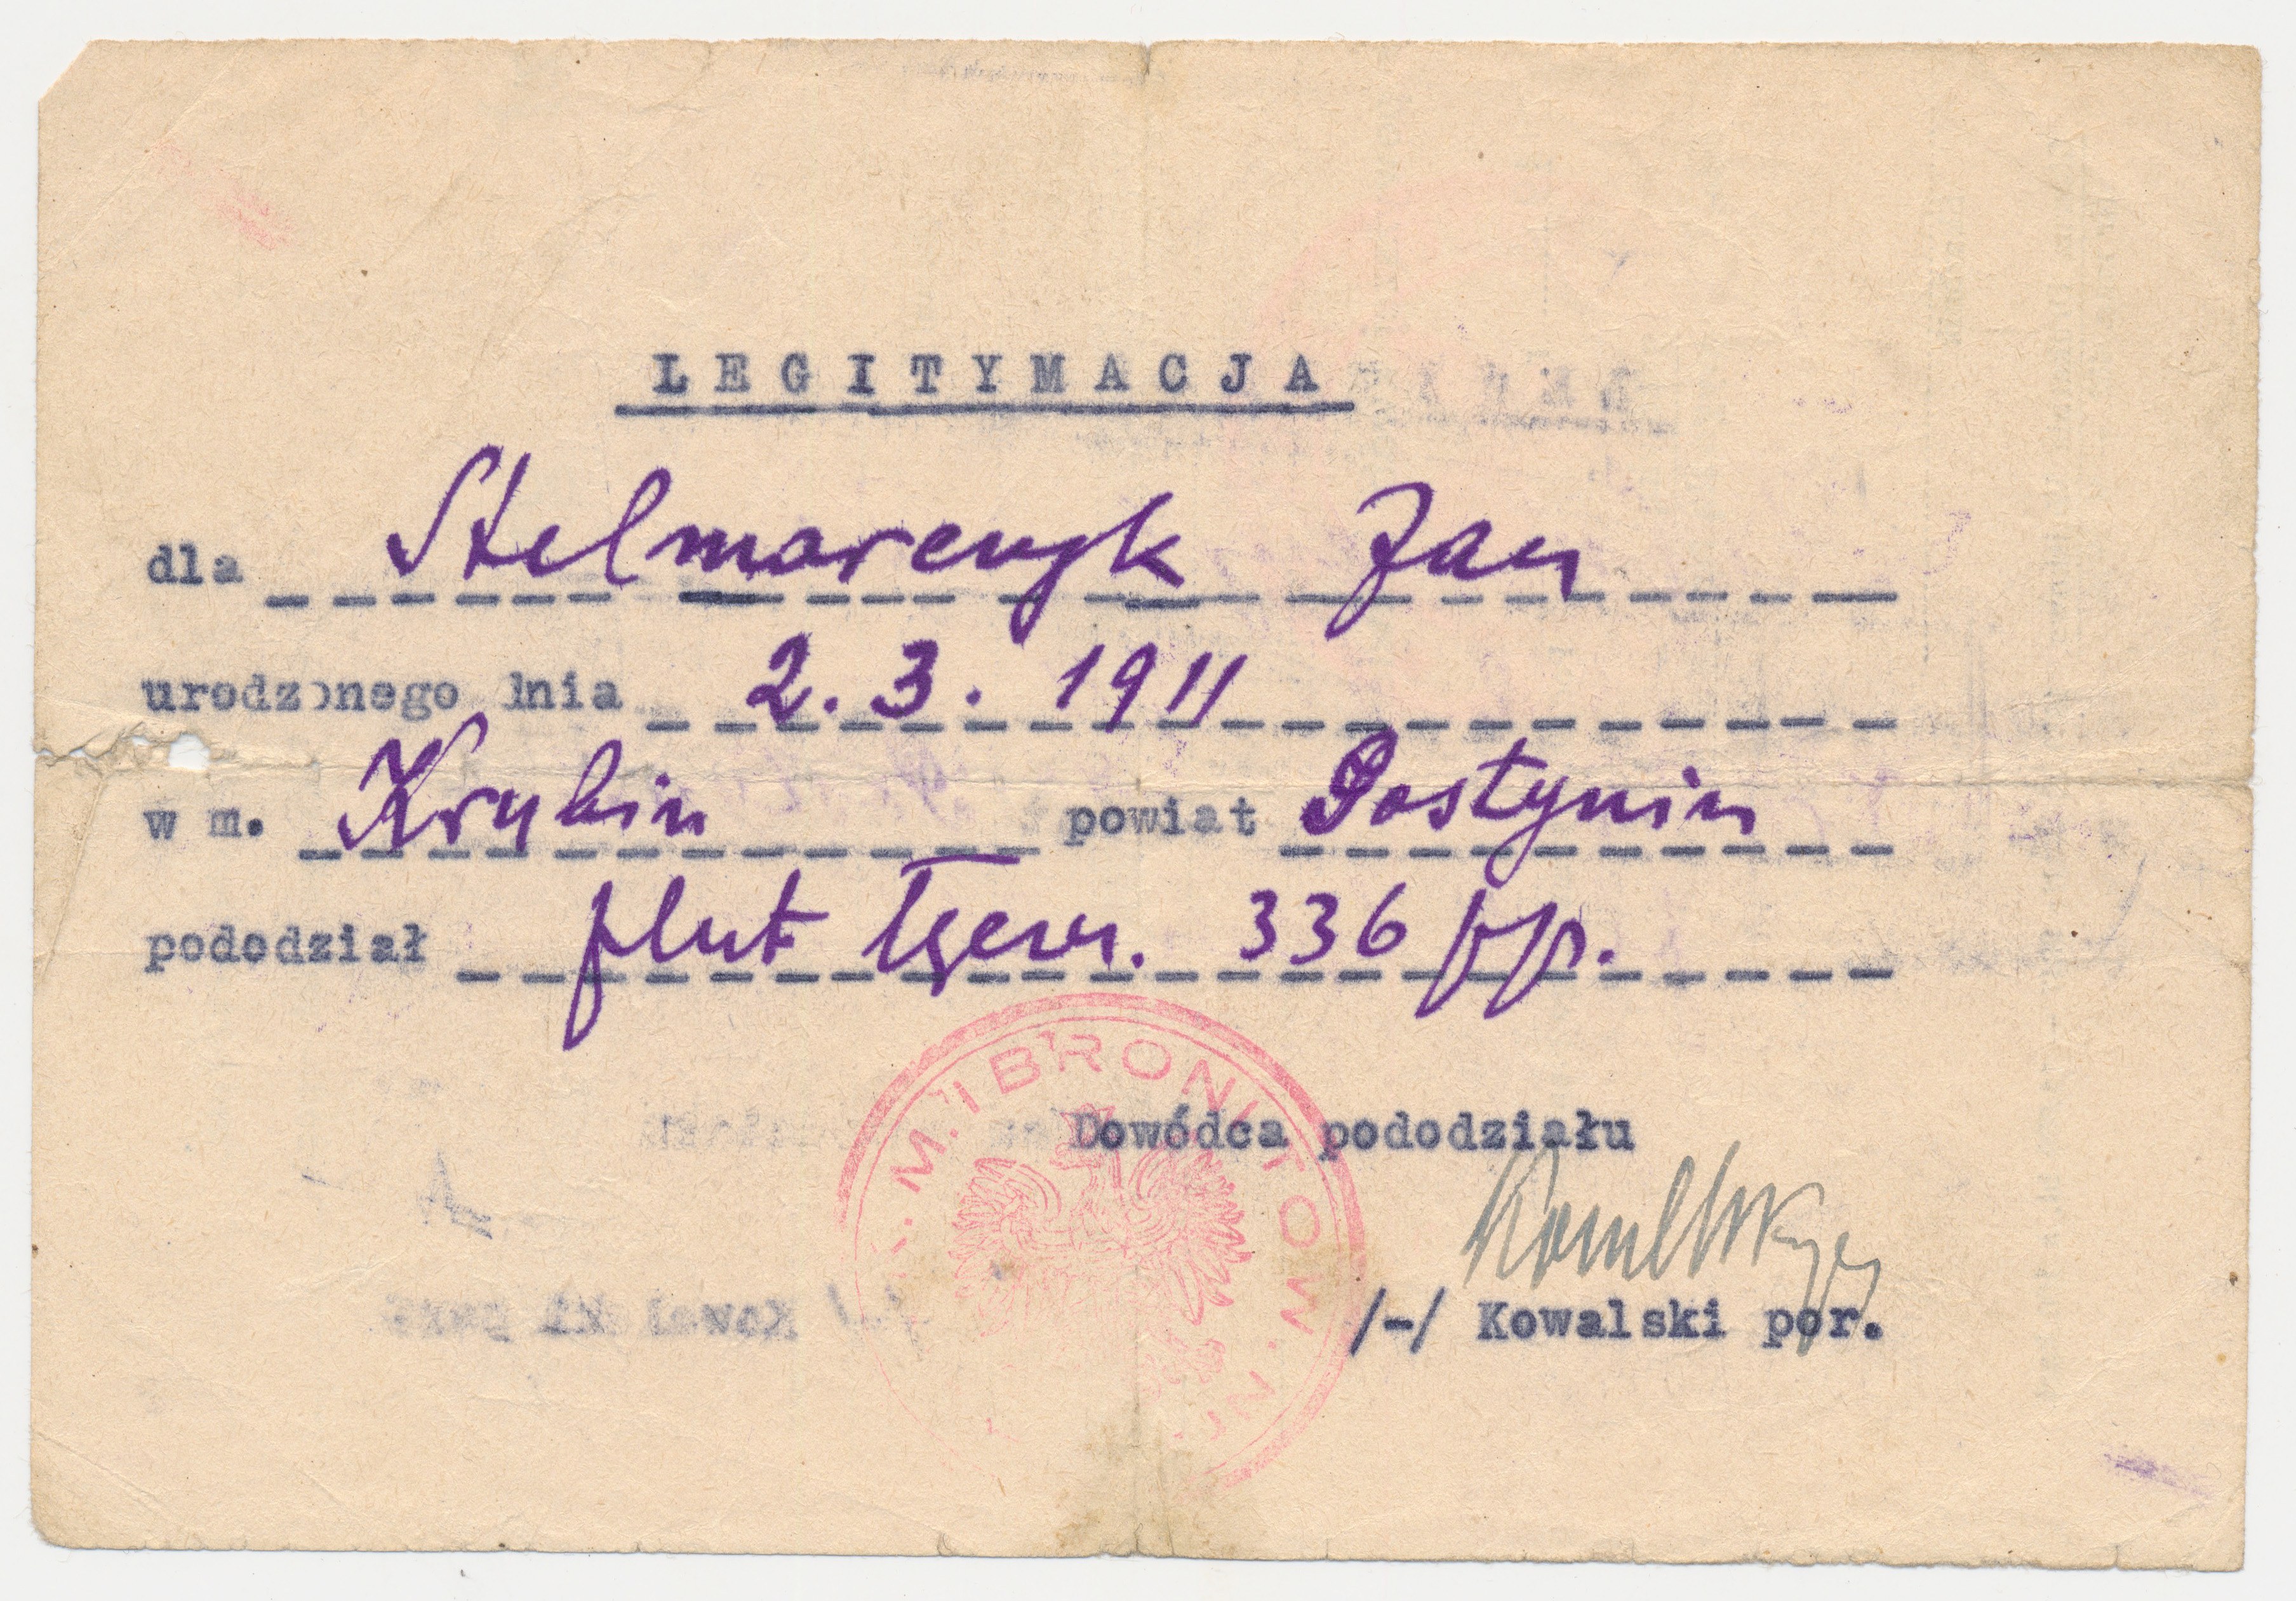 LEGITYMACJA
dla Stelmarczyk Jan
urodzonego dnia 2. 3. 1911
w m. Krubin powiat Gostynin
pododział plut łączn. 336 pp.
M. I BRONI TOW. NR.
Dowódca pododziału
/-/ Kowalski por.